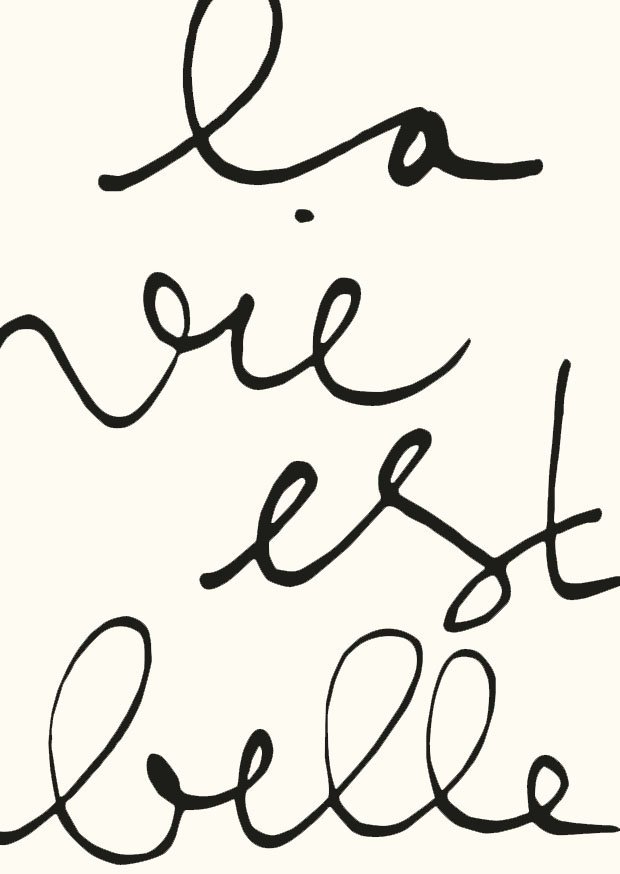 la
vie
est
belle